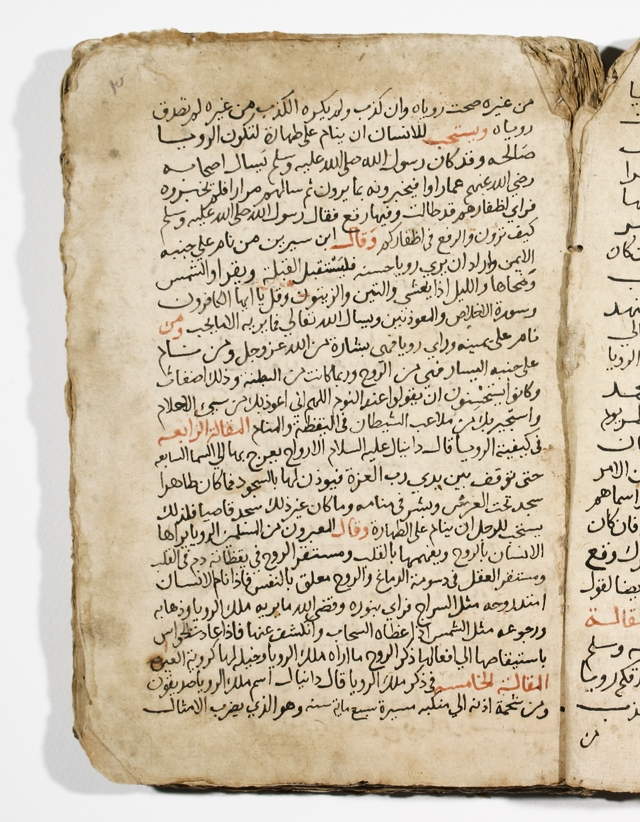 من غيره صحت روياه وان كذب ولم يكره الكذب من غيره لم تصدق
روياه ويستحب للانسان ان ينام على طهارة لتكون الرويا
صالحه وقد كان رسول الله صلى الله عليه وسلم يسال اصحابه
رضي الله عنهم عما راوا فيخبرونه بما يرون ثم سالهم مرارا فلم يخبروه
فراي اظفارهم قد طالت وفيها رفع فقال رسول الله صلى الله عليه وسلم
كيف ترون والرفع في اظفاركم وقال ابن سيرين من نام على جنبه
الايمن واراد ان يري رويا حسنه فليستقبل القبلة ويقرا والشمس
وضحاها والليل اذا يغشي والتين والزيتون وقل يا ايها الكافرون
وسورة الاخلاص والمعوذتين ويسال الله تعالي فانه يريه الا ما يحب ومن
نام على يمينه وراي رويا فهي بشارة من الله عز وجل ومن نام
على جنبه اليسار فهي من الروح وربما كانت من البطنة وذلك اضغاث
وكانوا يستحبون ان يقولوا عند النوم اللهم اني اعوذ بك من سيئ الاحلام
واستجير بك من ملاعب الشيطان في اليقظة والمنام المقالة الرابعه
في كيفية الرويا قال دانيال عليه السلام الارواح يعرج بها الي السما السابعه
حتى توقف بين يدي رب العزة فيوذن لها بالسجود فما كان طاهرا
سجد تحت العرش وبشر في منامه وما كان غير ذلك سجد قاصيا فلذلك
يستحب للرجل ان ينام على الطهارة وقال المعبرون من المسلمين الرويا يراها
الانسان بالروح ويفهمها بالقلب ومستقر الروح في نقطة دم في القلب
ومستقر العقل في دسومة الدماغ والروح معلق بالنفس فاذا نام الانسان
امتد روحه مثل السراج فراي بنوره وقضي الله ما يريه ملك الرويا وذهابه
ورجوعه مثل الشمس اذا غطاه السحاب وانكشف عنها فاذا عادت الحواس
باستيقاضها الي افعالها ذكر الروح ما اراه ملك الرويا وخيل لها كروية العين
المقالة الخامسه في ذكر ملك الرويا قال دانيال اسم ملك الرويا صديقون
ومن شحمة اذنه الي منكبه مسيرة سبع ماية سنه وهو الذي يضرب الامثال